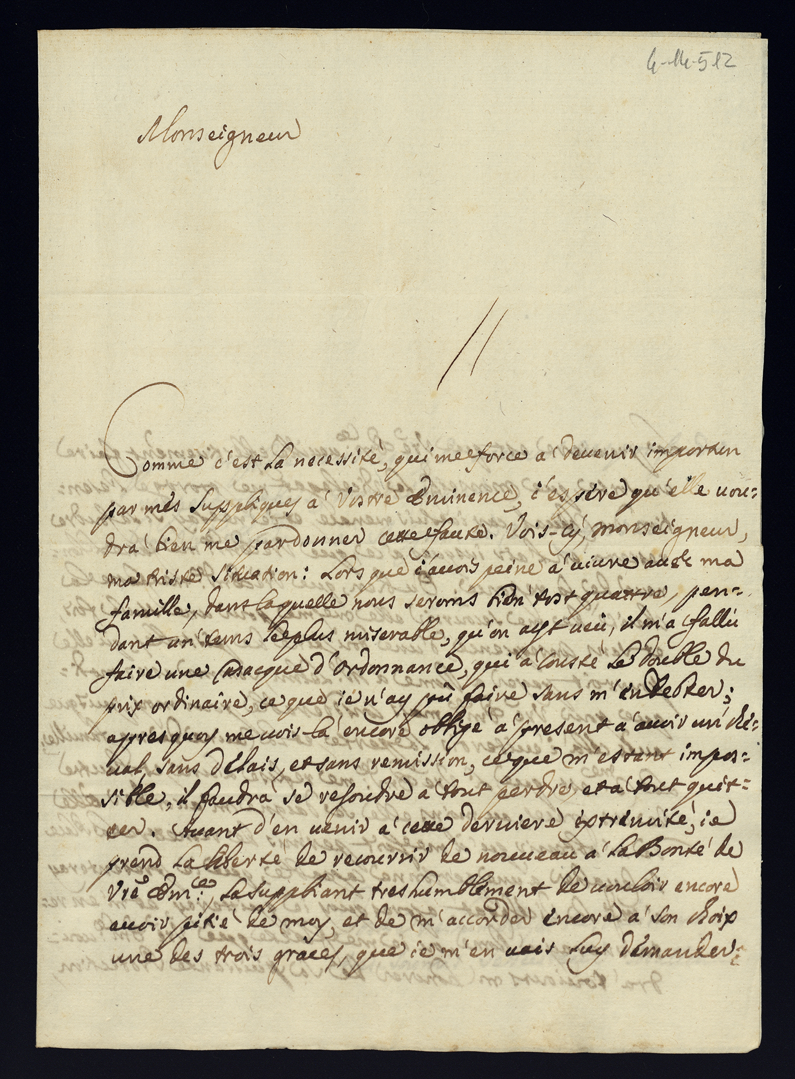 4-14-512
Monseigneur
Comme c'est la necessité, qui me force à devenir importun
par mes suppliques à Vostre Eminence, i'espere qu'elle vou=
dra bien me pardonner cette faute. Vois-cy, monseigneur,
ma triste situation: Lors que i'avois peine à vivre avec ma
famille, dans laquelle nous serons bien tost quattre, pen=
dant un tems le plus miserable, qu'on ayt veü, il m'a fallu
faire une Casacque d'ordonnance, qui a cousté le double du
prix ordinaire, ce que ie n'ay pû faire sans m'endebter;
apres quoy me vois-là encore obligé à present à avoir un che=
val, sans délais, et sans remission, ce que m'estant impos=
sible, il faudra se resoudre à tout perdre et à tout quit=
ter. Avant d'en venir à cette derniere extremité, ie
prend la liberté de recourrir de nouveau à la Bonté de
Vre Emce, la suppliant tres humblement de vouloir encore
avoir pitié de moy, et de m'accorder encore à son choix
une des trois graces, que ie m'en vais luy demander: